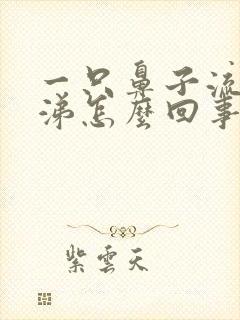 一只鼻子流
涕怎麼回事
紫雲天